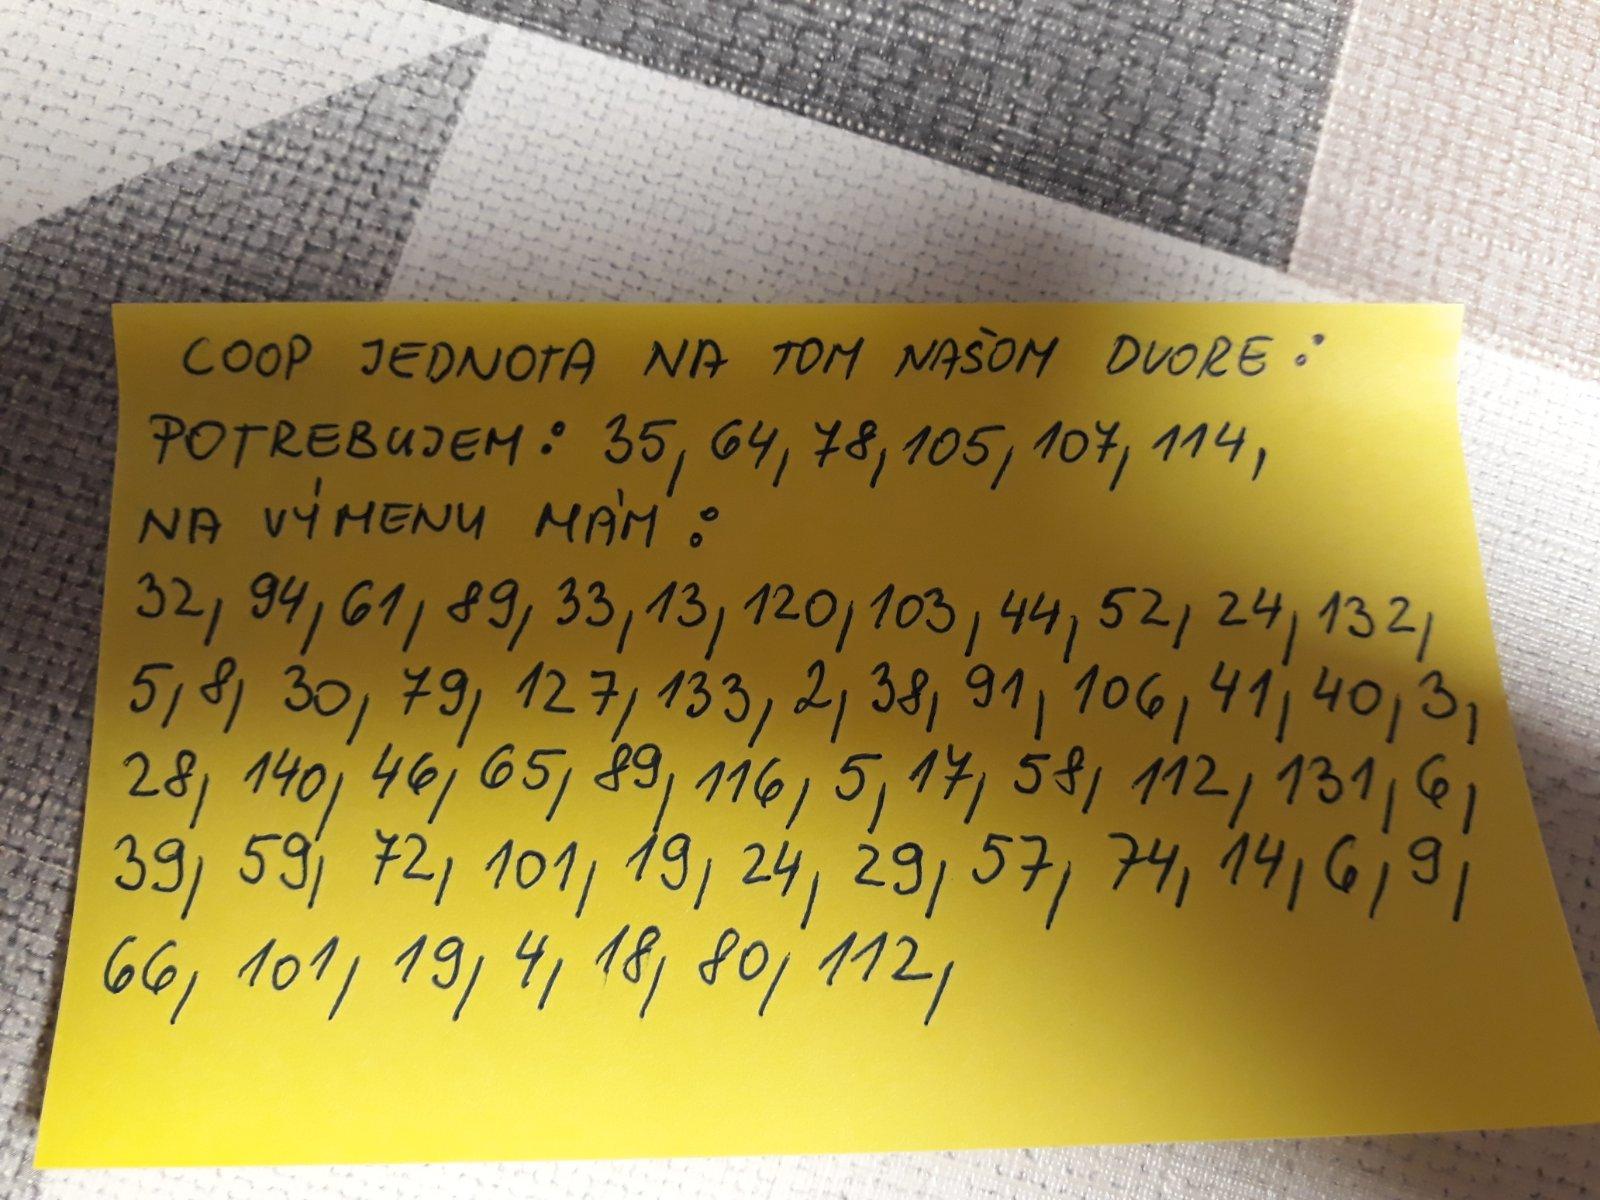 COOP JEDNOTA NA TOM NAŠOM DVORE:
POTREBUJEM: 35, 64, 78, 105, 107, 114,
NA VÝMENU MÁM:
32, 94, 61, 89, 33, 13, 120, 103, 44, 52, 24, 132,
5, 8, 30, 79, 127, 133, 2, 38, 91, 106, 41, 40, 3,
28, 140, 46, 65, 89, 116, 5, 17, 58, 112, 131, 6,
39, 59, 72, 101, 19, 24, 29, 57, 74, 14, 6, 9,
66, 101, 19, 4, 18, 80, 112,